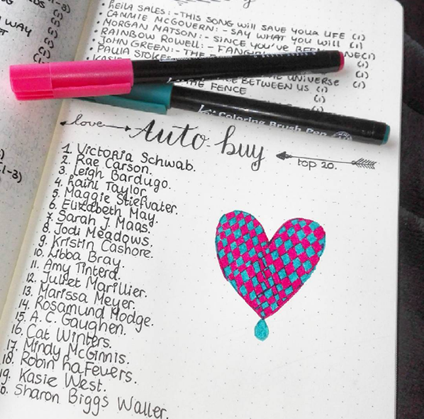 LEILA SALES:- THIS SONG WILL SAVE YOUR LIFE (1)
CAMMIE MCGOVERN:- SAY WHAT YOU WILL (1)
MORGAN MATSON:- SINCE YOU'VE BEEN GONE(1)
RAINBOW ROWELL:- FANGIRL
JOHN GREEN:- THE
KASIE
UNIVERSE (1)
BETWEEN US (1)
THE FENCE (1)
WAY
TO
(1)
Coloring Brush Pen
love
Auto buy
top 20.
1. Victoria Schwab.
2. Rae Carson.
3. Leigh Bardugo.
4. Laini Taylor.
5. Maggie Stiefvater.
6. Elizabeth May.
7. Sarah J Maas.
8. Jodi Meadows.
9. Kristin Cashore.
10. Libba Bray.
11. Amy Tintera.
12. Juliet Marillier.
13. Marissa Meyer.
14. Rosamund Hodge.
15. A.C. Gaughen.
16. Cat Winters.
17. Mindy McGinnis.
18. Robin LaFevers.
19. Kasie West.
20. Sharon Biggs Waller.